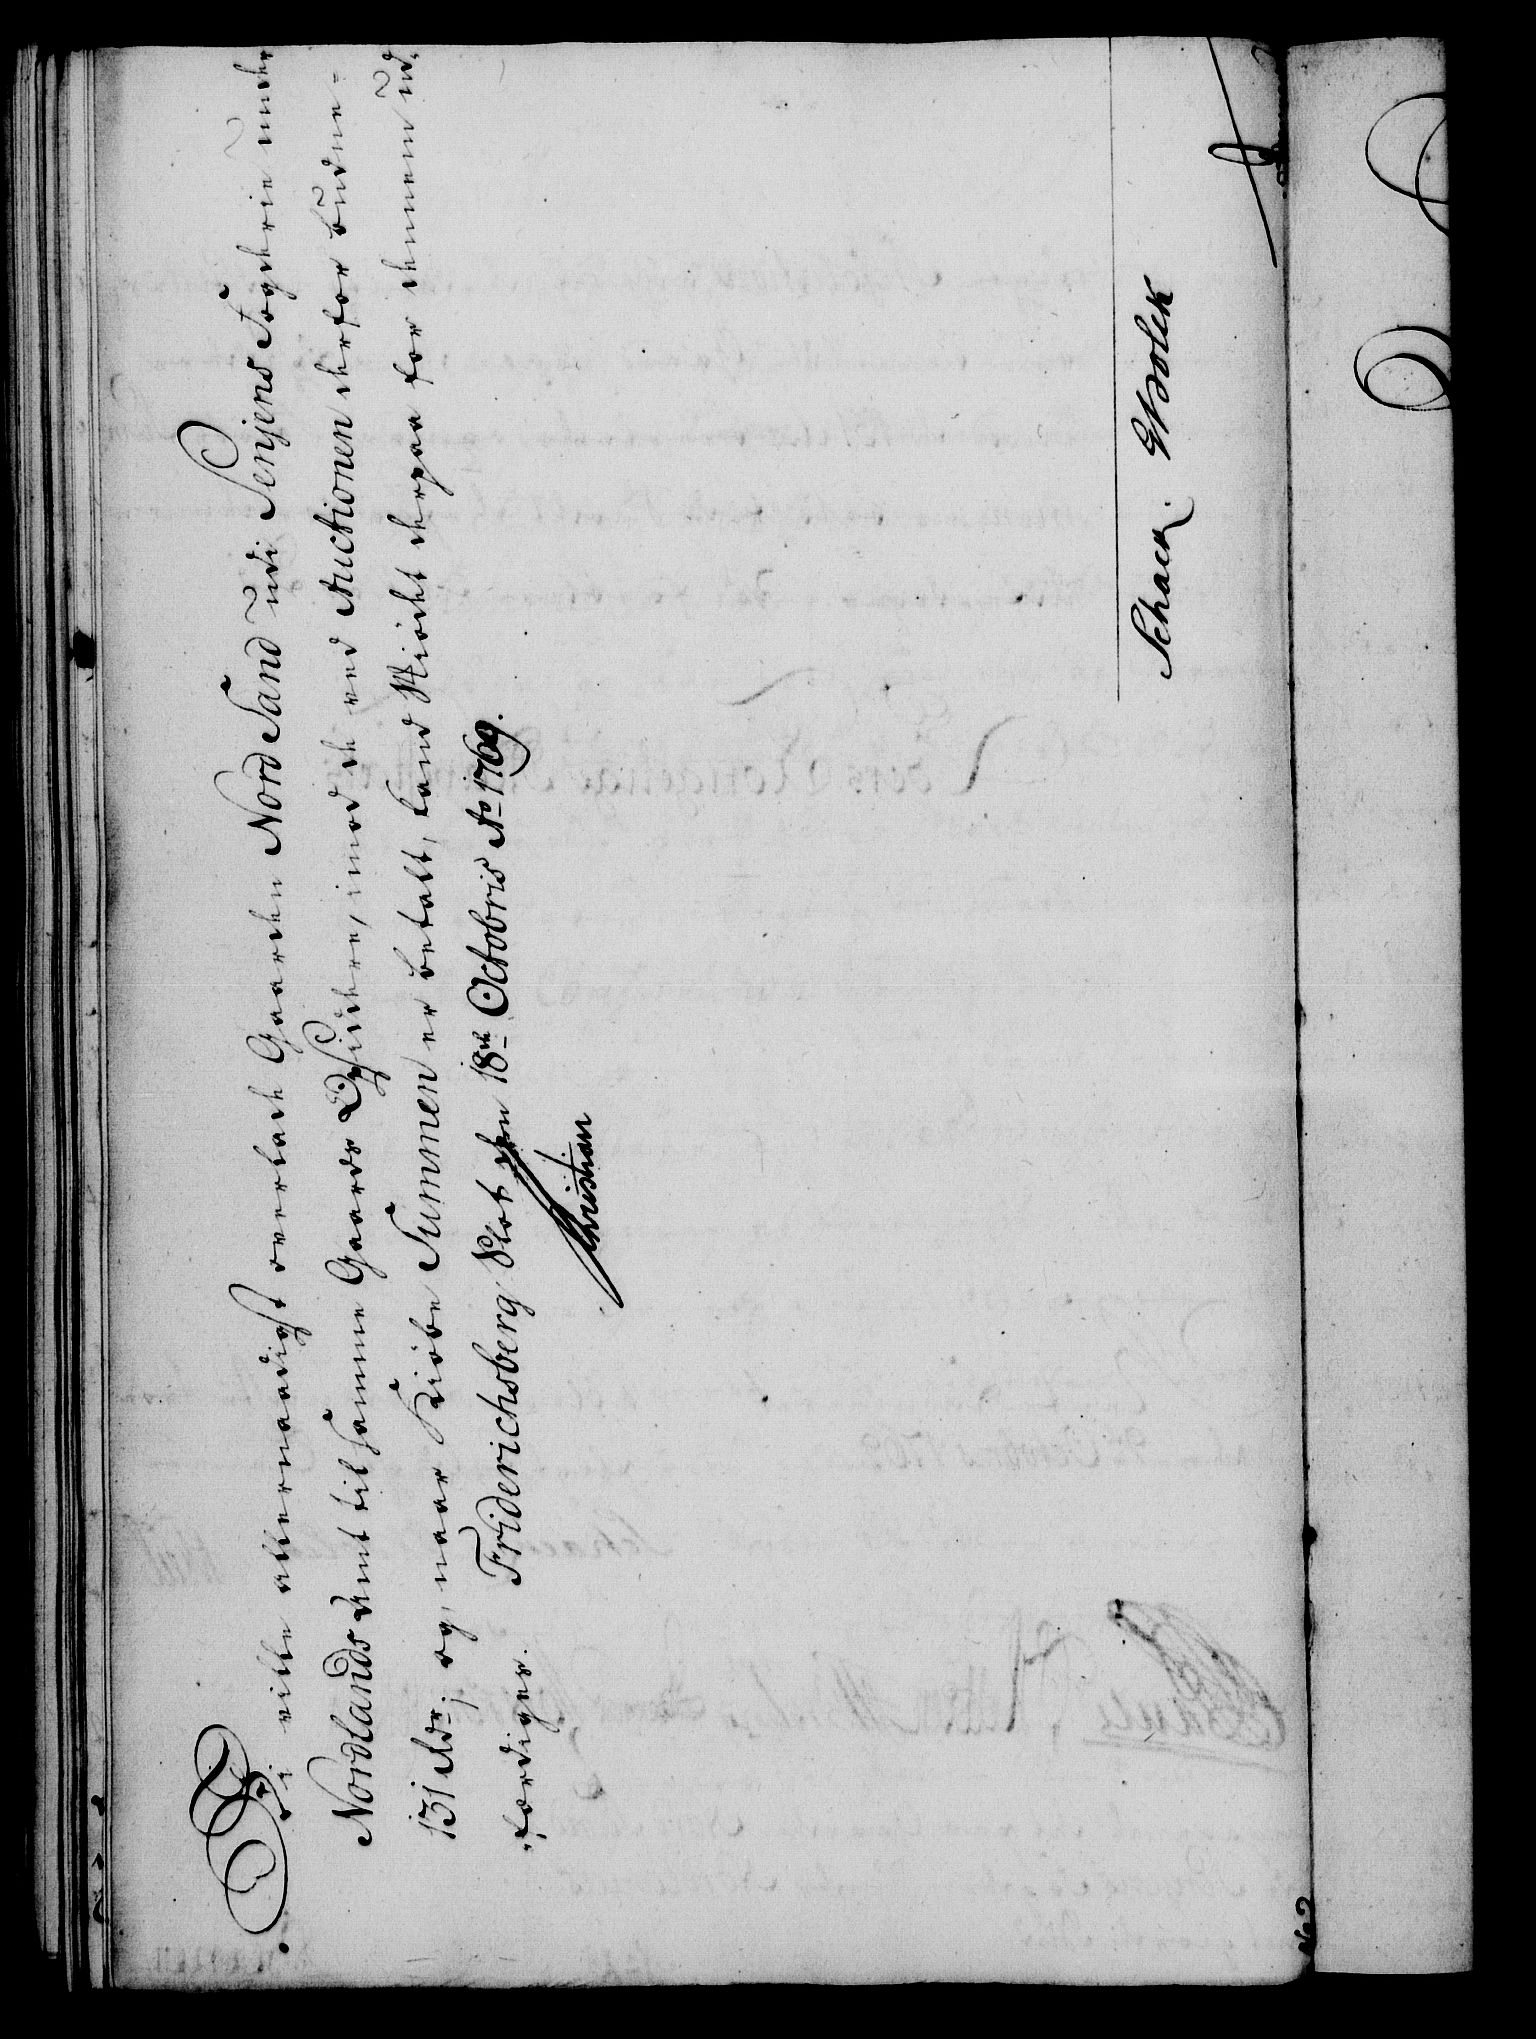 Vi ville allernaadigst overlade Gaarden Nord Sand udi Senjens Fogderie under
Nordlands Amt til samme Gaards Opsiddere, imod de ved Auctionen derfor budne
131 Rdr; og, naar Kiöbe Summen er betalt, kand Skiödet derpaa for dennem ud,
færdiges. Friderichsberg Slot den 18de Octobris Ao 1769.
Christian
Schack. GHolck